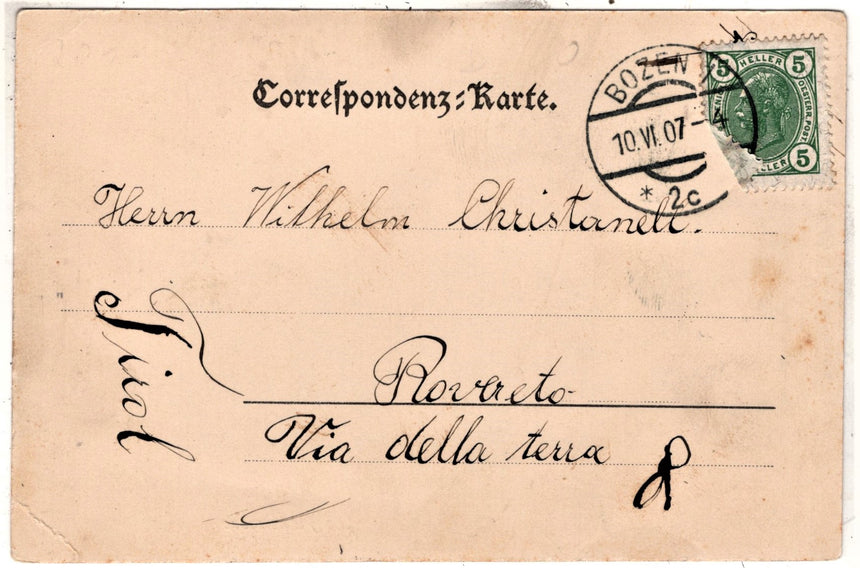 Correspondenz-Karte.
BOZEN
10.VI.07-4
* 2c
5 HELLER 5
OESTERR.POST.
HELLER 5
Herrn Wilhelm Christanell.
Rovereto
Via della terra 8
Tirol